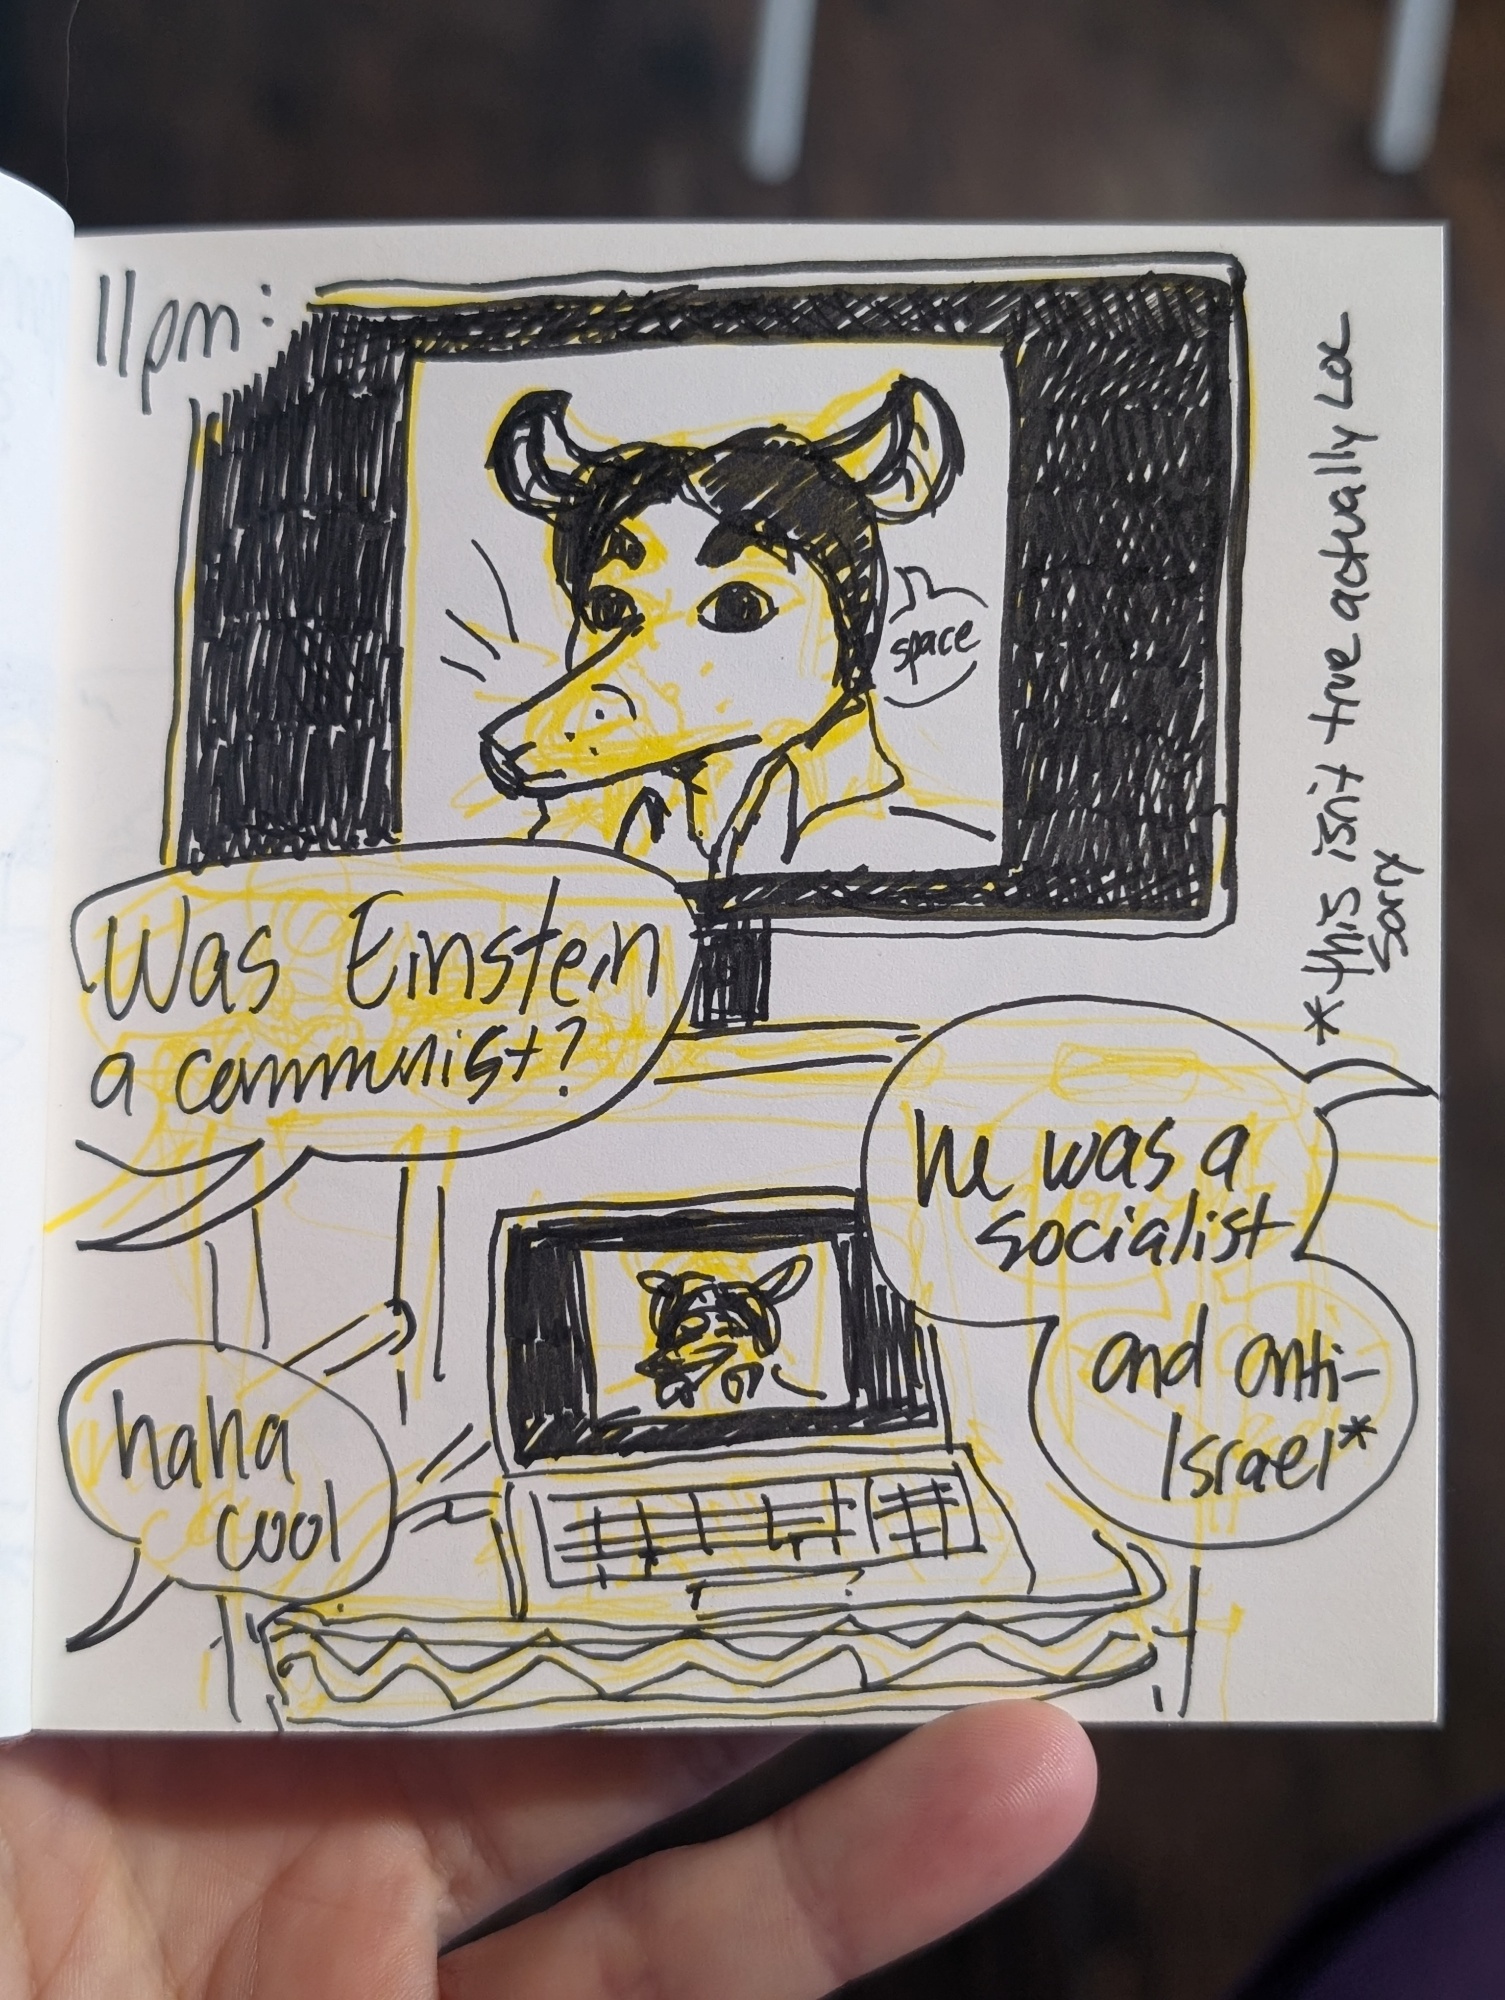 11pm:
space
Was Einstein
a communist?
he was a
socialist
and anti-
Israel*
haha
cool
*this isn't true actually LOL
sorry